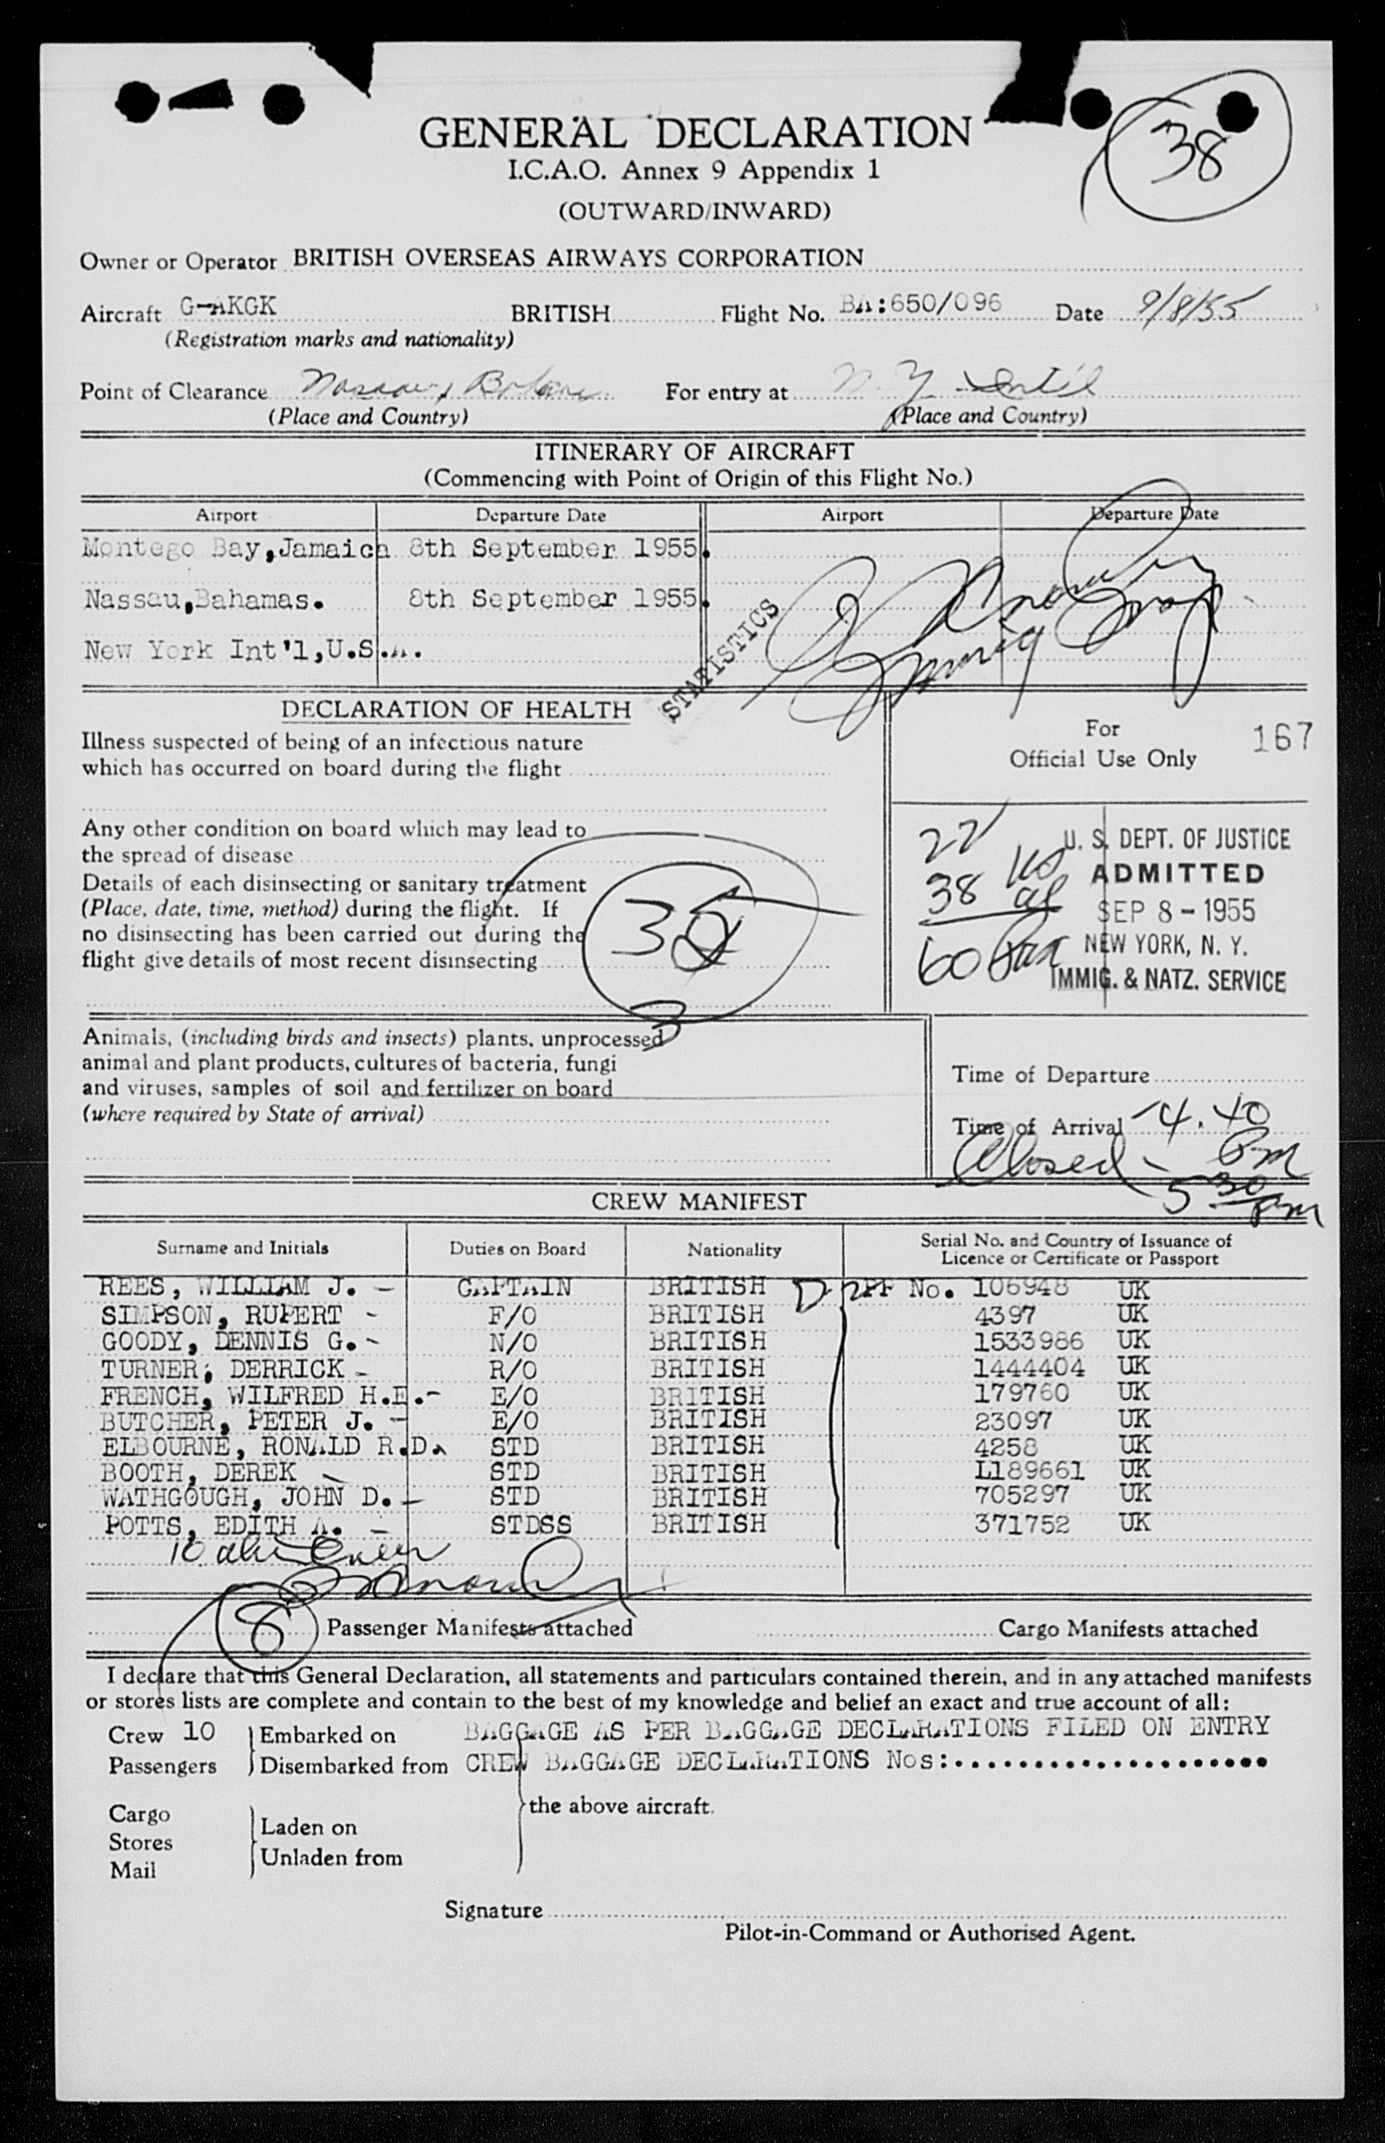 38
GENERAL DECLARATION
I.C.A.O. Annex 9 Appendix 1
(OUTWARD/INWARD)
Owner or Operator BRITISH OVERSEAS AIRWAYS CORPORATION
Aircraft G-AKGK BRITISH Flight No. BA:650/096 Date 9/8/55
(Registration marks and nationality)
Point of Clearance Nassau, For entry at N.Y. Int'l
(Place and Country) (Place and Country)
ITINERARY OF AIRCRAFT
(Commencing with Point of Origin of this Flight No.)
Airport Departure Date Airport Departure Date
Montego Bay,Jamaica 8th September 1955.
Nassau,Bahamas. 8th September 1955.
New York Int'l,U.S.A.
STATISTICS
DECLARATION OF HEALTH
Illness suspected of being of an infectious nature
which has occurred on board during the flight
For
Official Use Only
167
Any other condition on board which may lead to
the spread of disease
Details of each disinsecting or sanitary treatment
(Place, date, time, method) during the flight. If
no disinsecting has been carried out during the
flight give details of most recent disinsecting
22 US
38 al
60 Pax
U. S. DEPT. OF JUSTICE
ADMITTED
SEP 8 - 1955
NEW YORK, N. Y.
IMMIG. & NATZ. SERVICE
Animals, (including birds and insects) plants, unprocessed
animal and plant products, cultures of bacteria, fungi
and viruses, samples of soil and fertilizer on board
(where required by State of arrival)
Time of Departure
Time of Arrival 4.40 Pm
Closed - 5 30 Pm
CREW MANIFEST
Surname and Initials Duties on Board Nationality Serial No. and Country of Issuance of
Licence or Certificate or Passport
REES, WILLIAM J. - CAPTAIN BRITISH PPF No. 106948 UK
SIMPSON, RUPERT - F/O BRITISH 4397 UK
GOODY, DENNIS G. - N/O BRITISH 1533986 UK
TURNER; DERRICK - R/O BRITISH 1444404 UK
FRENCH, WILFRED H.E. - E/O BRITISH 179760 UK
BUTCHER, PETER J. - E/O BRITISH 23097 UK
ELBOURNE, RONALD R.D. STD BRITISH 4258 UK
BOOTH, DEREK - STD BRITISH L189661 UK
WATHGOUGH, JOHN D. - STD BRITISH 705297 UK
POTTS, EDITH A. - STDSS BRITISH 371752 UK
10 Crew
8 Passenger Manifests attached Cargo Manifests attached
I declare that this General Declaration, all statements and particulars contained therein, and in any attached manifests
or stores lists are complete and contain to the best of my knowledge and belief an exact and true account of all:
Crew 10 Embarked on BAGGAGE AS PER BAGGAGE DECLARATIONS FILED ON ENTRY
Passengers Disembarked from CREW BAGGAGE DECLARATIONS Nos:....................
the above aircraft.
Cargo
Stores Laden on
Mail Unladen from
Signature
Pilot-in-Command or Authorised Agent.